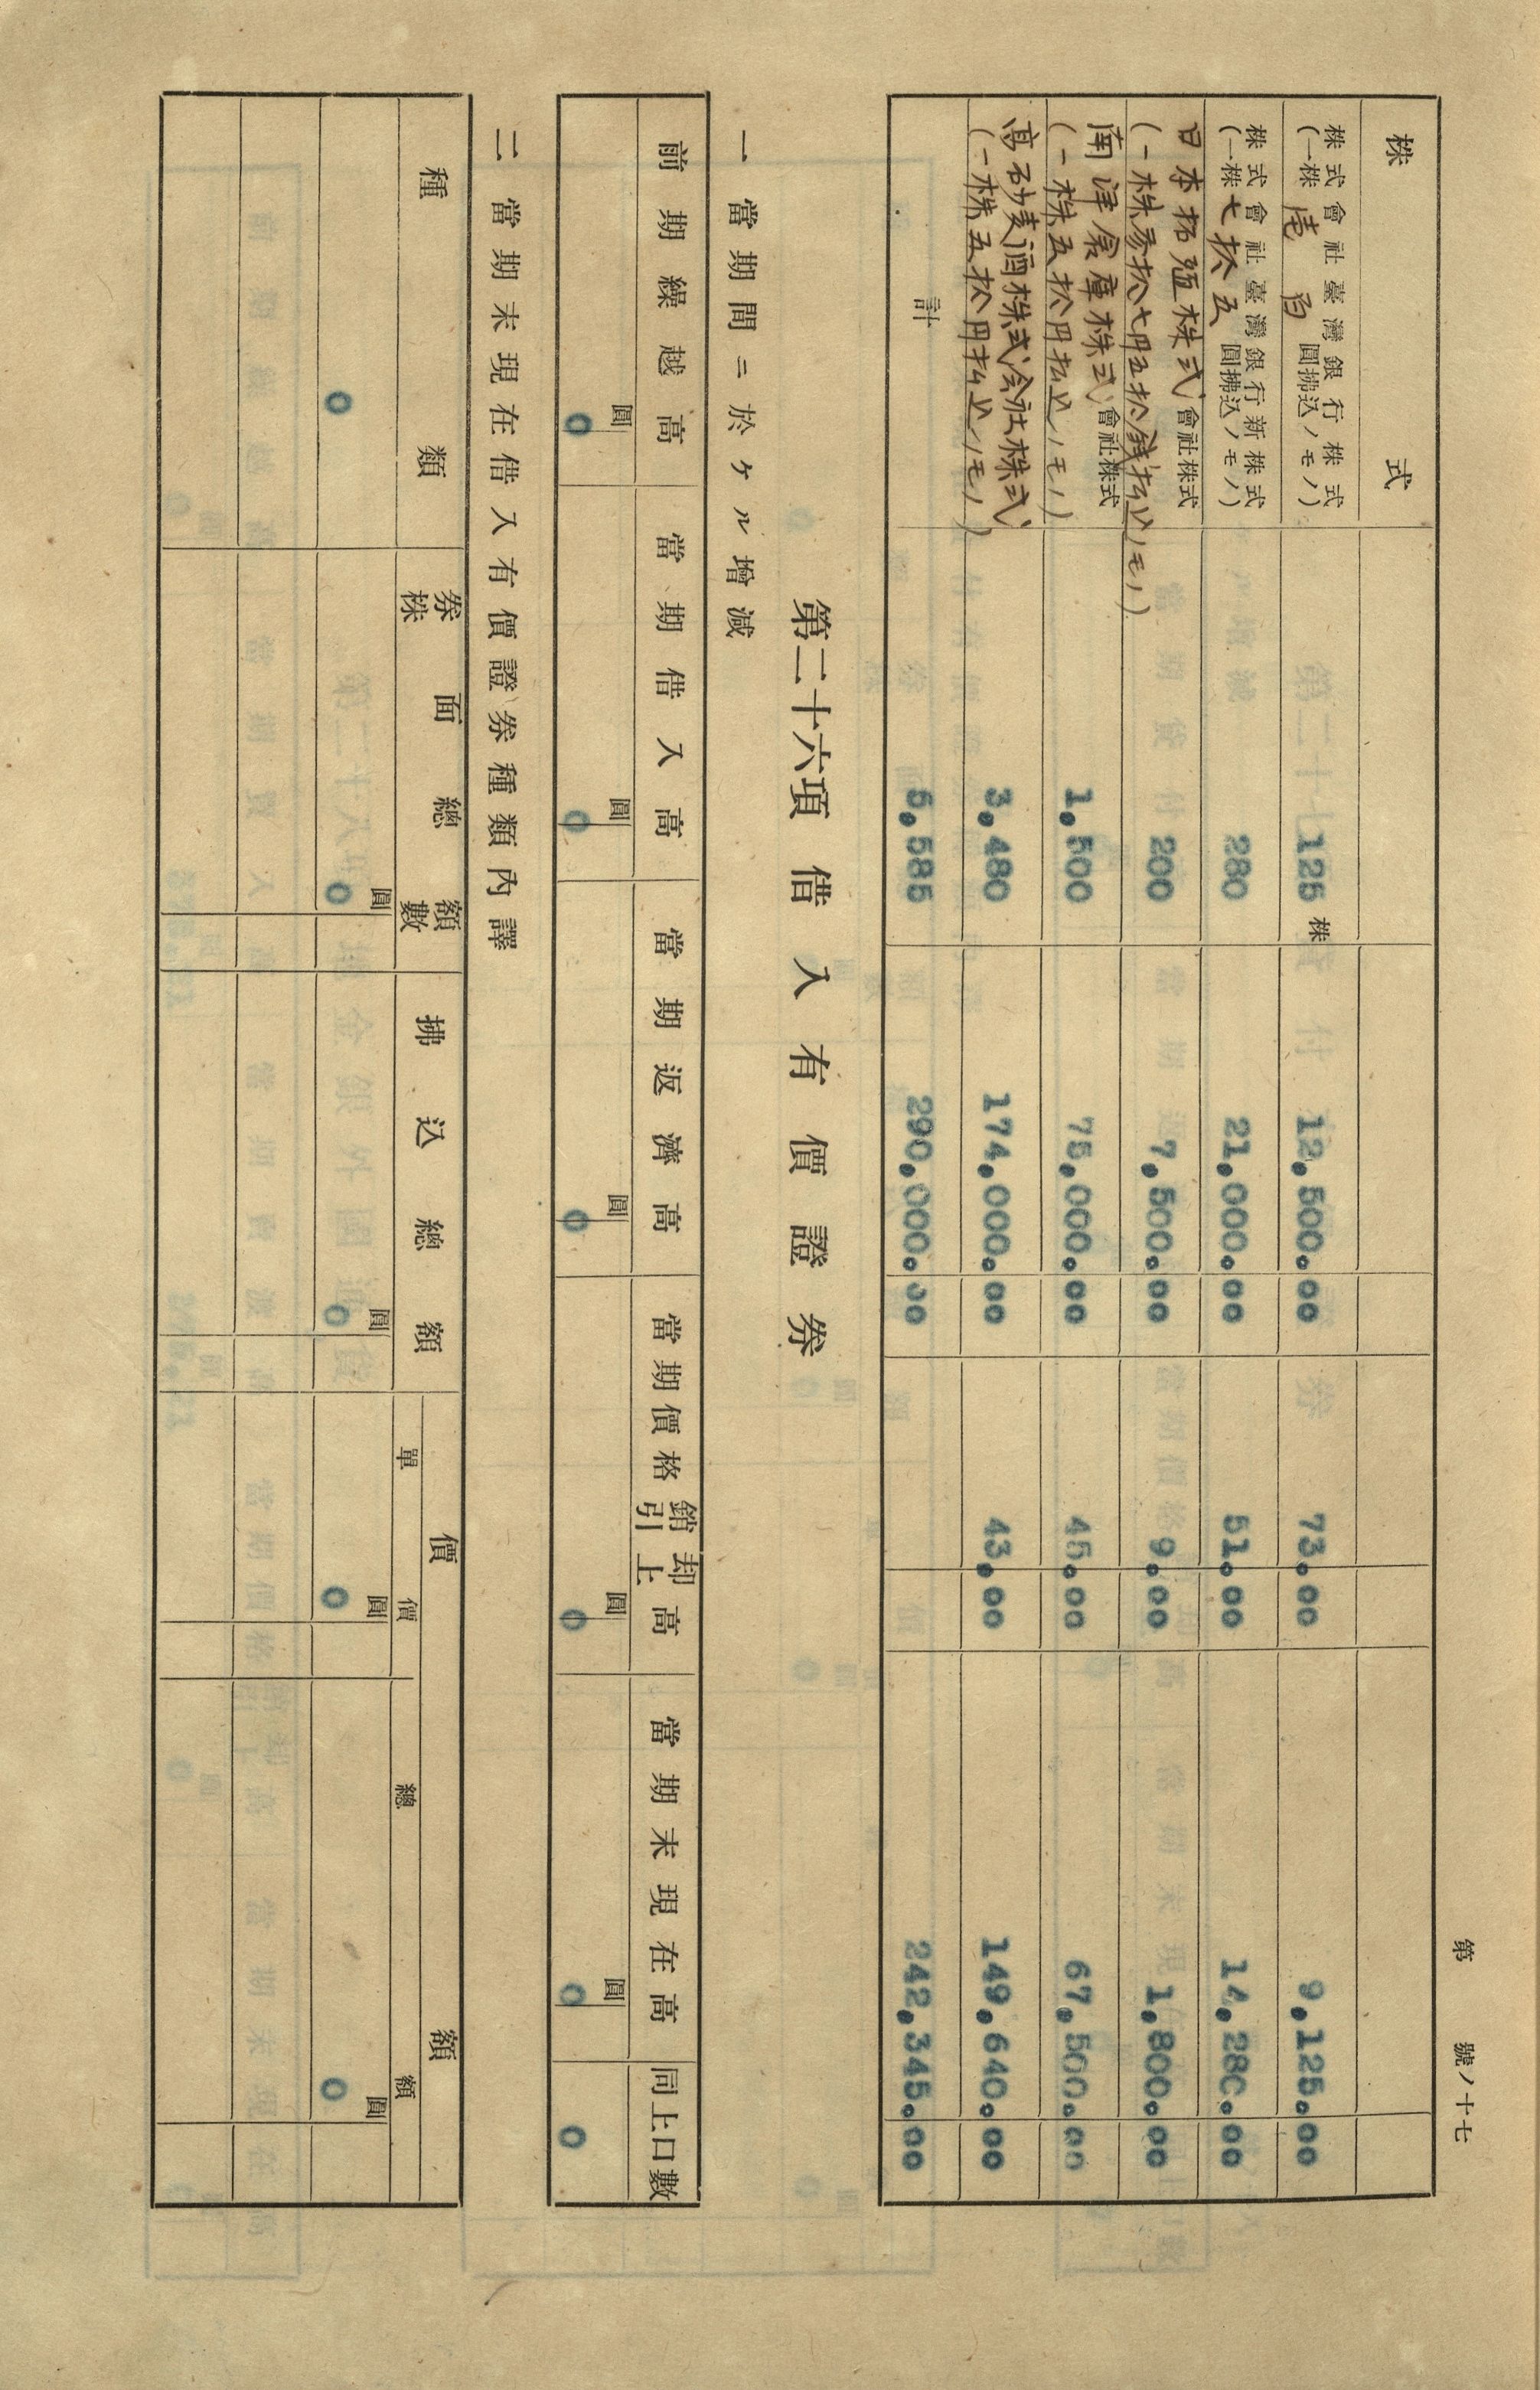 第 號ノ十七
株式
株式會社臺灣銀行株式
(一株壱百圓拂込ノモノ) 125株 12,500.00 73.00 9,125.00
株式會社臺灣銀行新株式
(一株七拾五圓拂込ノモノ) 280 21,000.00 51.00 14,280.00
日本拓殖株式會社株式
(一株参拾七円五拾銭払込ノモノ) 200 7,500.00 9.00 1,800.00
南洋倉庫株式會社株式
(一株五拾円払込ノモノ) 1,500 75,000.00 45.00 67,500.00
高砂麦酒株式会社株式
(一株五拾円払込ノモノ) 3,480 174,000.00 43.00 149,640.00
計 5,585 290,000.00 242,345.00
第二十六項 借入有價證券
一 當期間ニ於ケル增減
前期繰越高 當期借入高 當期返濟高 當期價格銷却引上高 當期末現在高 同上口數
圓 圓 圓 圓 圓
0 0 0 0 0 0
二 當期末現在借入有價證券種類內譯
種類 券面總額 株數 拂込總額 價額
單價 總額
圓 圓 圓 圓
0 0 0 0 0